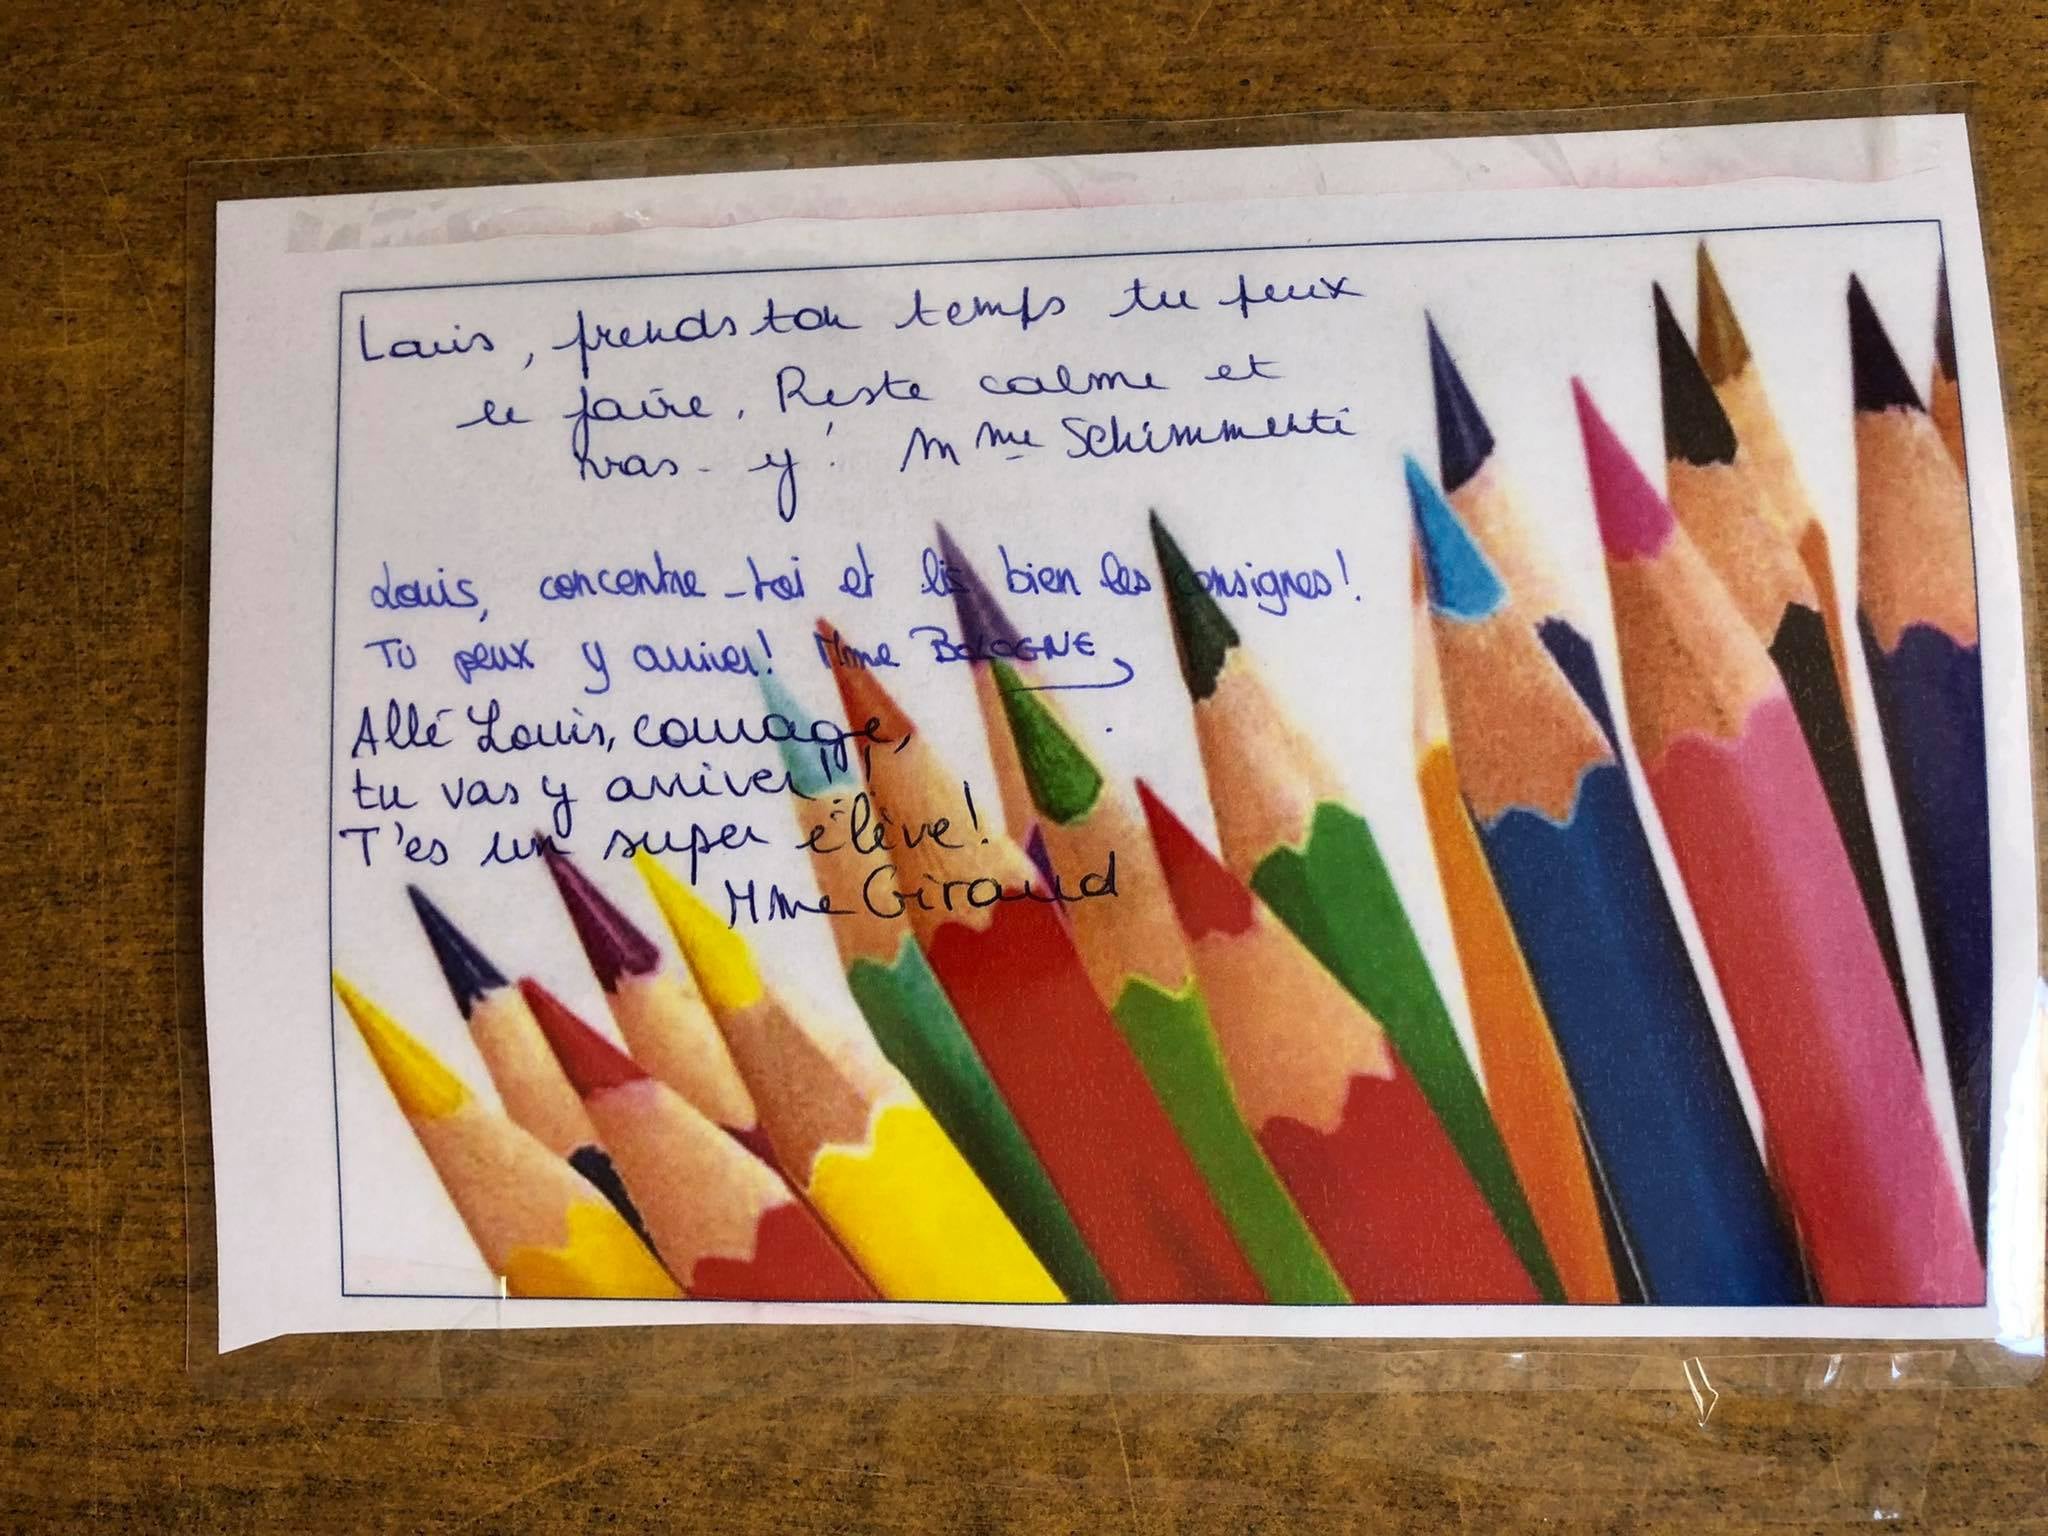 Louis, prends ton temps tu peux
le faire. Reste calme et
vas-y! Mme Schimmenti
Louis, concentre-toi et lis bien les consignes!
Tu peux y arriver! Mme BOLOGNE
Allé Louis, courage,
tu vas y arriver!!
T'es un super élève!
Mme Giraud